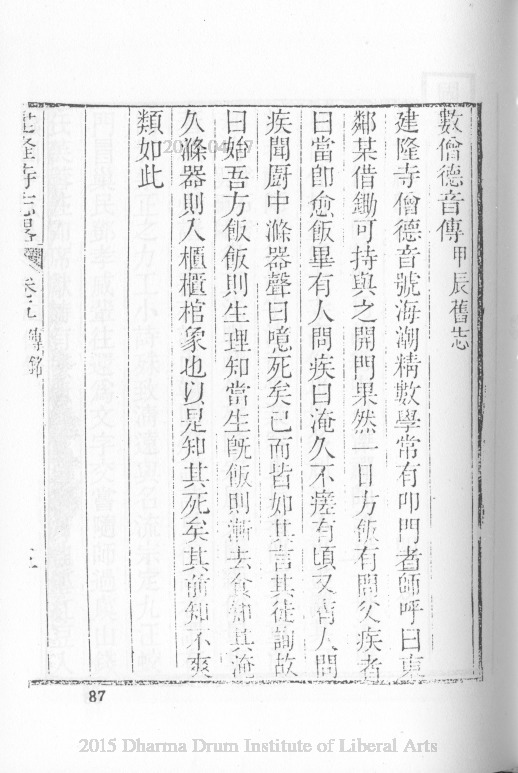 數僧德音傳甲辰舊志
建隆寺僧德音號海潮精數學常有叩門者師呼曰東
鄰某借鋤可持與之開門果然一日方飯有問父疾者
曰當即愈飯畢有人問疾曰淹久不瘥有頃又有人問
疾聞厨中滌器聲曰噫死矣已而皆如其言其徒詢故
曰始吾方飯飯則生理知當生既飯則漸去食知其淹
久滌器則入櫃櫃棺象也以是知其死矣其前知不爽
類如此
建隆寺志畧 卷 傳銘
87
2015 Dharma Drum Institute of Liberal Arts